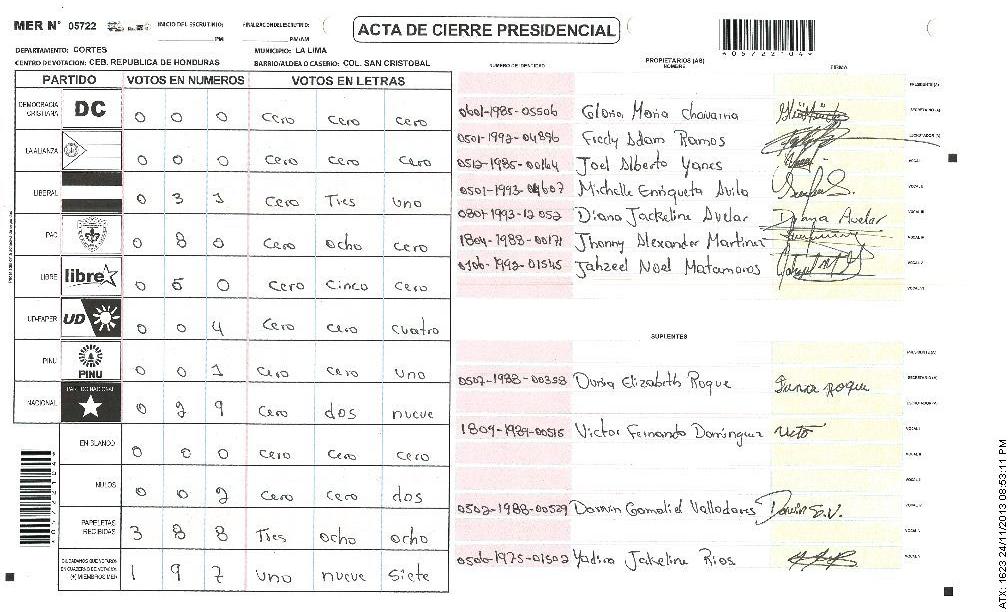 MER N° 05722 INICIO DEL ESCRUTINIO: PM FINALIZACION ESCRUTINIO: PM/AM
ACTA DE CIERRE PRESIDENCIAL
DEPARTAMENTO: CORTES MUNICIPIO: LA LIMA
CENTRO DE VOTACION: CEB. REPUBLICA DE HONDURAS BARRIO/ALDEA O CASERIO: COL. SAN CRISTOBAL
PARTIDO VOTOS EN NUMEROS VOTOS EN LETRAS
DEMOCRACIA CRISTIANA DC 0 0 0 cero cero cero
LA ALIANZA 0 0 0 cero cero cero
LIBERAL 0 3 1 cero Tres uno
PAC 0 8 0 cero ocho cero
LIBRE libre 0 5 0 cero cinco cero
UD-FAPER UD 0 0 4 cero cero cuatro
PINU PINU 0 0 1 cero cero uno
NACIONAL PARTIDO NACIONAL 0 2 9 cero dos nueve
EN BLANCO 0 0 0 cero cero cero
NULOS 0 0 2 cero cero dos
PAPELETAS RECIBIDAS 3 8 8 Tres ocho ocho
CIUDADANOS QUE VOTARON EN CUADERNO DE VOTACION (+) MIEMBROS MER 1 9 7 uno nueve siete
PROPIETARIOS (AS)
NUMERO DE IDENTIDAD NOMBRE FIRMA
PRESIDENTE (A)
0601-1985-05506 Gloria Maria Chavarria SECRETARIO (A)
0501-1992-04896 Fredy Adam Ramos ESCRUTADOR (A)
0512-1985-00164 Joel Alberto Yanes VOCAL I
0501-1993-04607 Michelle Enriqueta Avila VOCAL II
0801-1993-12052 Diana Jackeline Avelar Dahya Avelar VOCAL III
1804-1988-00171 Jhonny Alexander Martinez VOCAL IV
0106-1992-01545 Jahzeel Noel Matamoros VOCAL V
VOCAL VI
SUPLENTES
PRESIDENTE (A)
0502-1988-00358 Dunia Elizabeth Roque Dunia Roque SECRETARIO (A)
ESCRUTADOR (A)
1804-1989-00515 Victor Fernando Dominguez Victor VOCAL I
VOCAL II
VOCAL III
0502-1988-00529 Darwin Gamaliel Valladares Darwin G.V. VOCAL IV
VOCAL V
0506-1975-01502 Yadira Jakeline Rios VOCAL VI
ATX: 1623 24/11/2013 08:53:11 PM